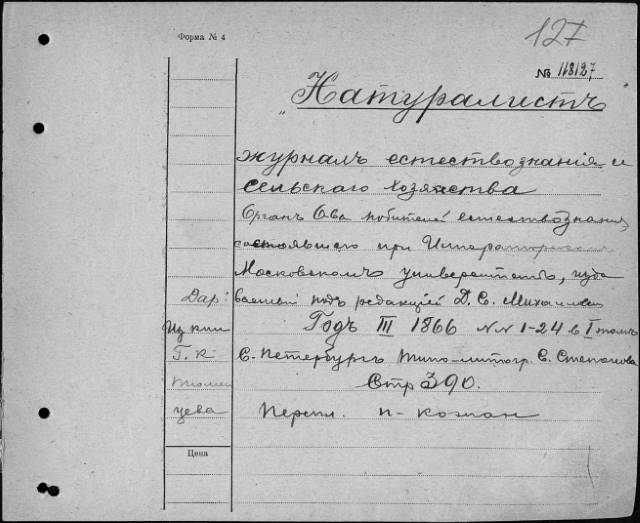 Форма № 4
127
№ 118127
„Натуралистъ
журналъ естествознания и
сельскаго хозяйства
Органъ О-ва любителей естествознания,
состоявшаго при Императорском
Московскомъ университетѣ, изда
Дар: ваемый подъ редакцiей Д. С. Михайлова
Из книг Годъ III 1866 NN 1-24 в I томѣ
Г. К. С. Петербургъ Типо-литогр. С. Степанова
Тюмен Стр 390.
цева Перепл. п-кожан
Цена